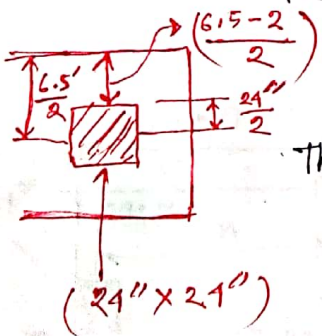 (6.5-2/2)
6.5'/2
24"/2
(24" X 24")